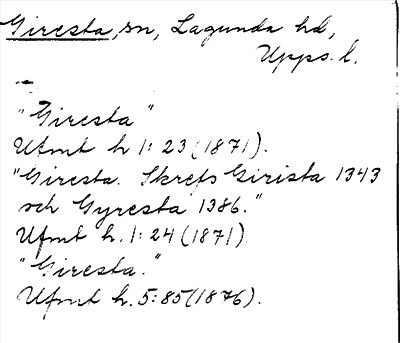 Giresta, sn, Lagunda hd,
Upps. l.
"Giresta"
Ufmt h 1: 23 (1871).
"Giresta. Skrefs Girista 1343
och Gyresta 1386."
Ufmt h. 1: 24 (1871)
"Giresta."
Ufmt h. 5: 85 (1876).